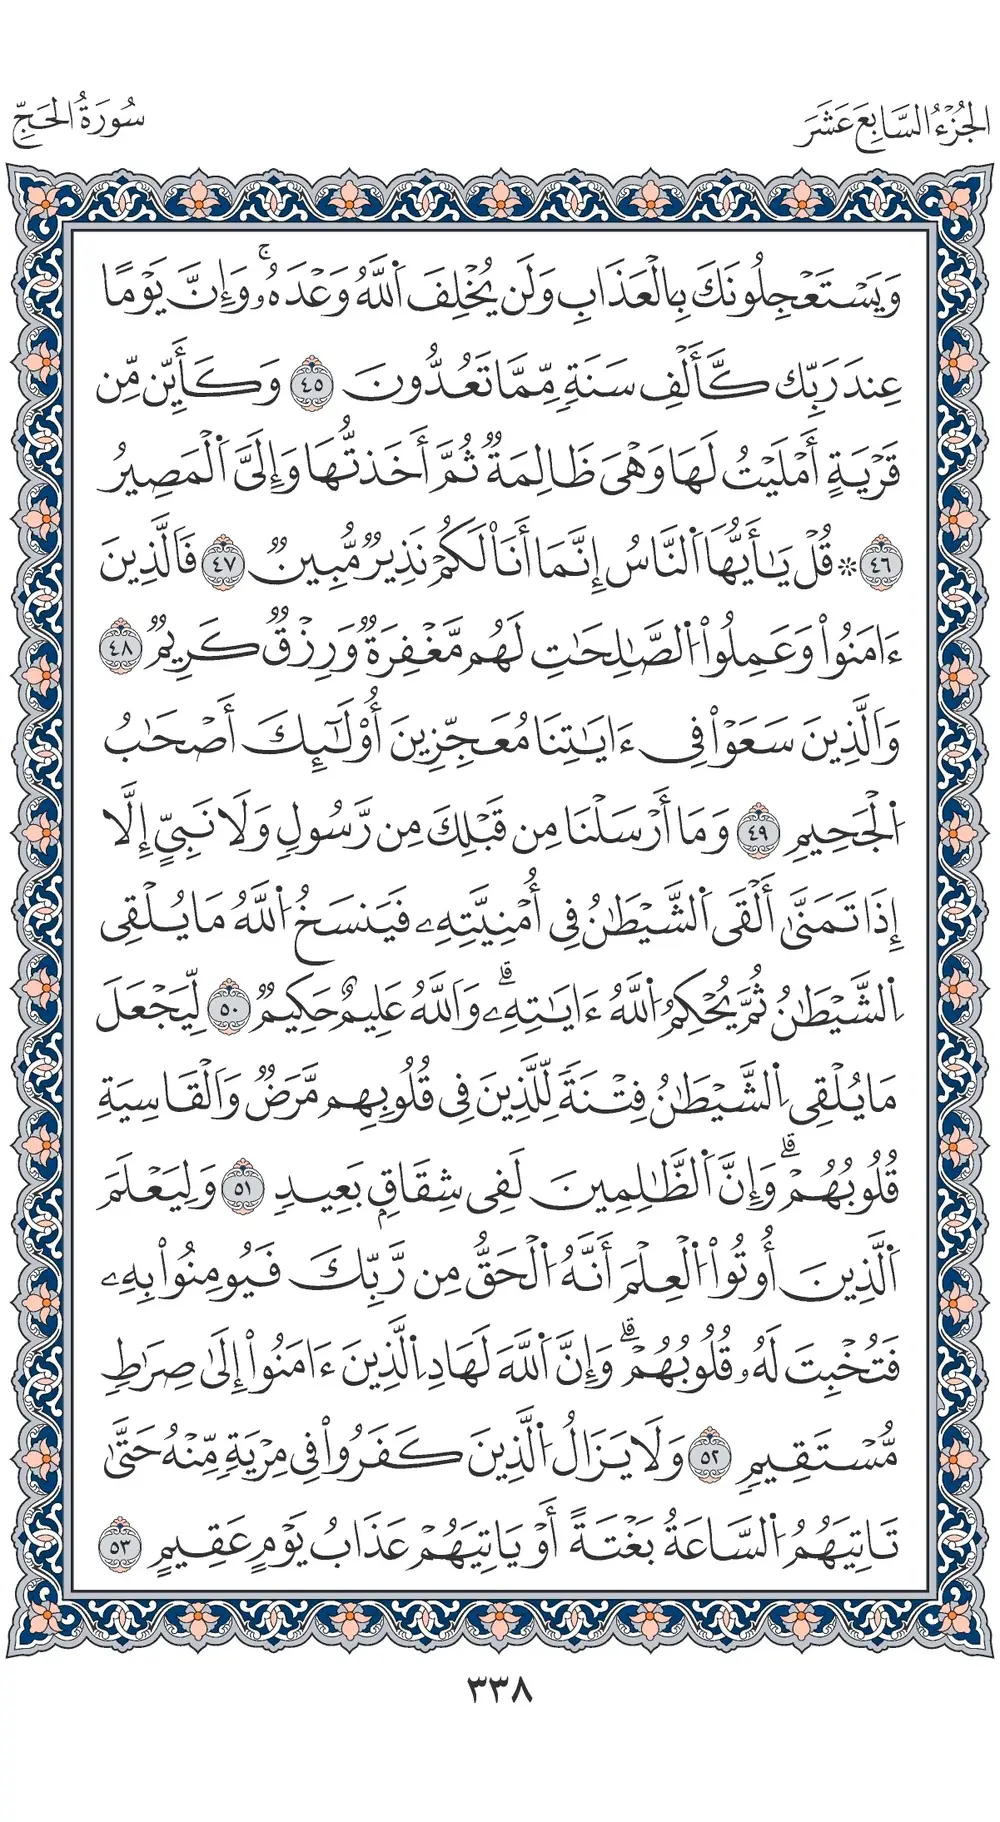 الجُزْءُ السَّابِعَ عَشَرَ
سُورَةُ الحَجِّ
وَيَسْتَعْجِلُونَكَ بِالْعَذَابِ وَلَن يُخْلِفَ اَ۬للَّهُ وَعْدَهُۥۚ وَإِنَّ يَوْمًا
عِندَ رَبِّك كَّأَلْفِ سَنَةٍ مِّمَّا تَعُدُّونَ ٤٥ وَكَأَيِّن مِّن
قَرْيَةٍ أَمْلَيْتُ لَهَا وَهْىَ ظَالِمَةٌ ثُمَّ أَخَذتُّهَا وَإِلَىَّ اَ۬لْمَصِيرُ
٤٦ ۞ قُلْ يَـٰأَيُّهَا اَ۬لنَّاسُ إِنَّمَا أَنَا۠ لَكُمْ نَذِيرٌ مُّبِينٌ ٤٧ فَالَّذِينَ
ءَامَنُواْ وَعَمِلُواْ اُ۬لصَّـٰلِحَـٰتِ لَهُم مَّغْفِرَةٌ وَرِزْقٌ كَرِيمٌ ٤٨
وَاَلَّذِينَ سَعَوْاْ فِى ءَايَـٰتِنَا مُعَجِّزِينَ أُوْلَـٰٓئِكَ أَصْحَـٰبُ
اُ۬لْجَحِيمِ ٤٩ وَمَا أَرْسَلْنَا مِن قَبْلِكَ مِن رَّسُولٍ وَلَا نَبِىٍّ إِلَّا
إِذَا تَمَنَّىٰ أَلْقَى اَ۬لشَّيْطَـٰنُ فِى أُمْنِيَّتِهِۦ فَيَنسَخُ اُ۬للَّهُ مَا يُلْقِى
اِ۬لشَّيْطَـٰنُ ثُمَّ يُحْكِمُ اُ۬للَّهُ ءَايَـٰتِهِۦۗ وَاَللَّهُ عَلِيمٌ حَكِيمٌ ٥٠ لِّيَجْعَلَ
مَا يُلْقِى اِ۬لشَّيْطَـٰنُ فِتْنَةً لِّلَّذِينَ فِى قُلُوبِهِم مَّرَضٌ وَاَلْقَاسِيَةِ
قُلُوبُهُمْۗ وَإِنَّ اَ۬لظَّـٰلِمِينَ لَفِى شِقَاقٍ بَعِيدٍ ٥١ وَلِيَعْلَمَ
اَ۬لَّذِينَ أُوتُواْ اُ۬لْعِلْمَ أَنَّهُ اُ۬لْحَقُّ مِن رَّبِّكَ فَيُومِنُواْ بِهِۦ
فَتُخْبِتَ لَهُۥ قُلُوبُهُمْۗ وَإِنَّ اَ۬للَّهَ لَهَادِ اِ۬لَّذِينَ ءَامَنُواْ إِلَىٰ صِرَٰطٍ
مُّسْتَقِيمٍ ٥٢ وَلَا يَزَالُ اُ۬لَّذِينَ كَفَرُواْ فِى مِرْيَةٍ مِّنْهُ حَتَّىٰ
تَاتِيَهُمُ اُ۬لسَّاعَةُ بَغْتَةً أَوْ يَاتِيَهُمْ عَذَابُ يَوْمٍ عَقِيمٍ ٥٣
٣٣٨